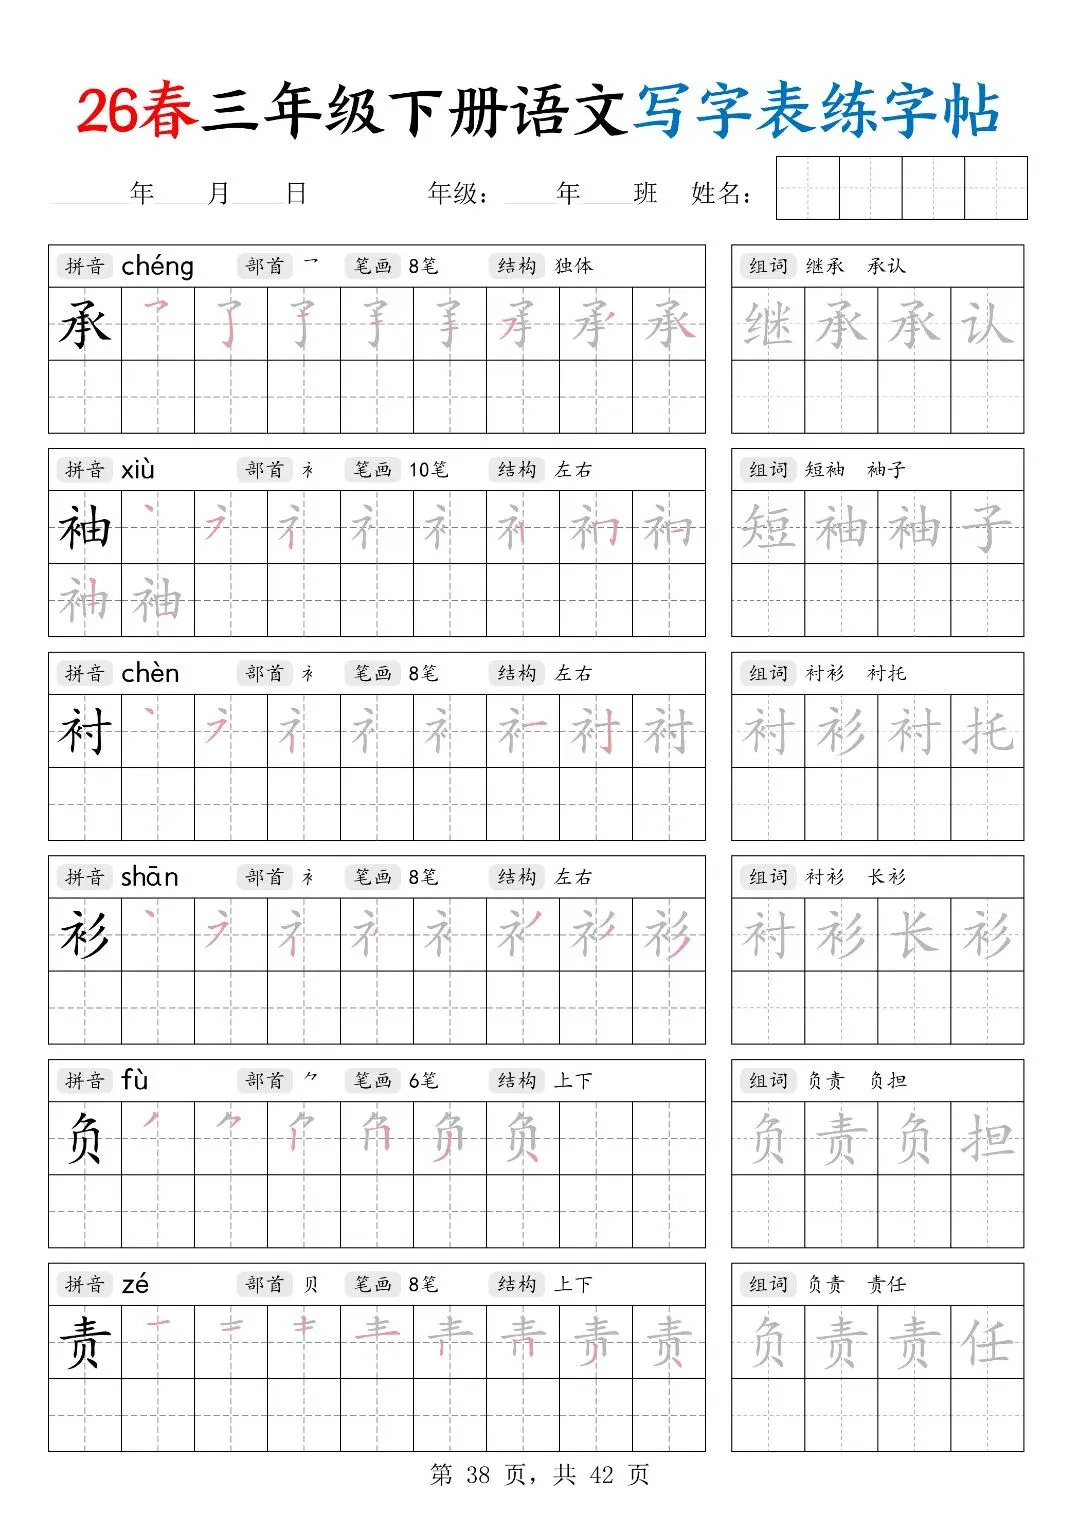 26春三年级下册语文写字表练字帖
年 月 日 年级： 年 班 姓名：
拼音 chéng 部首 乛 笔画 8笔 结构 独体 组词 继承 承认
承 继承承认
拼音 xiù 部首 衤 笔画 10笔 结构 左右 组词 短袖 袖子
袖 短袖袖子
拼音 chèn 部首 衤 笔画 8笔 结构 左右 组词 衬衫 衬托
衬 衬衫衬托
拼音 shān 部首 衤 笔画 8笔 结构 左右 组词 衬衫 长衫
衫 衬衫长衫
拼音 fù 部首 ⺈ 笔画 6笔 结构 上下 组词 负责 负担
负 负责负担
拼音 zé 部首 贝 笔画 8笔 结构 上下 组词 负责 责任
责 负责责任
第 38 页，共 42 页